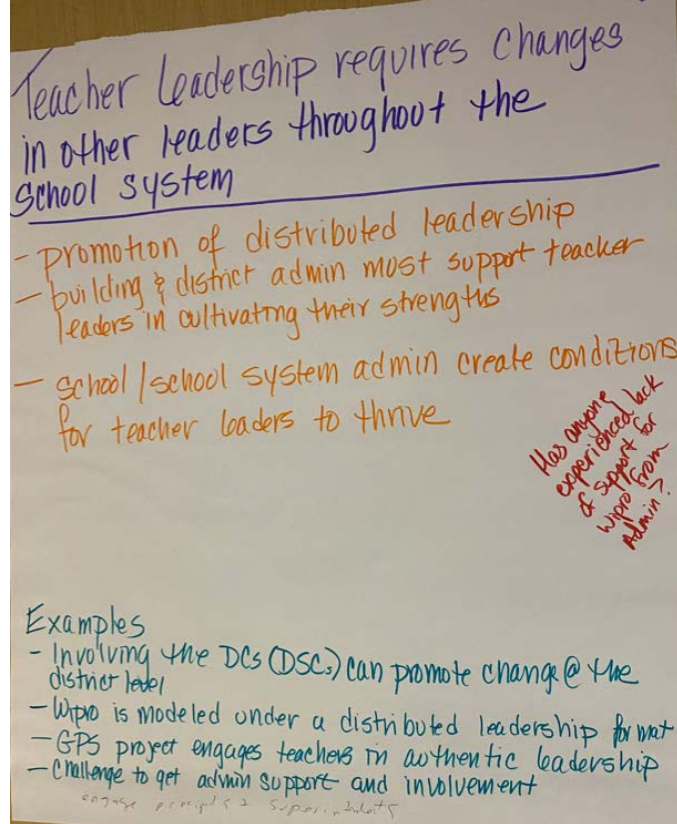 Teacher Leadership requires changes
in other leaders throughout the
School system
- promotion of distributed leadership
- building & district admin must support teacher
leaders in cultivating their strengths
- school/school system admin create conditions
for teacher leaders to thrive
Has anyone
experienced lack
of support for
Wipro from
Admin?
Examples
- Involving the DCs (DSCs) can promote change @ the
district level
- Wipro is modeled under a distributed leadership format
- GPS project engages teachers in authentic leadership
- Challenge to get admin support and involvement
engage